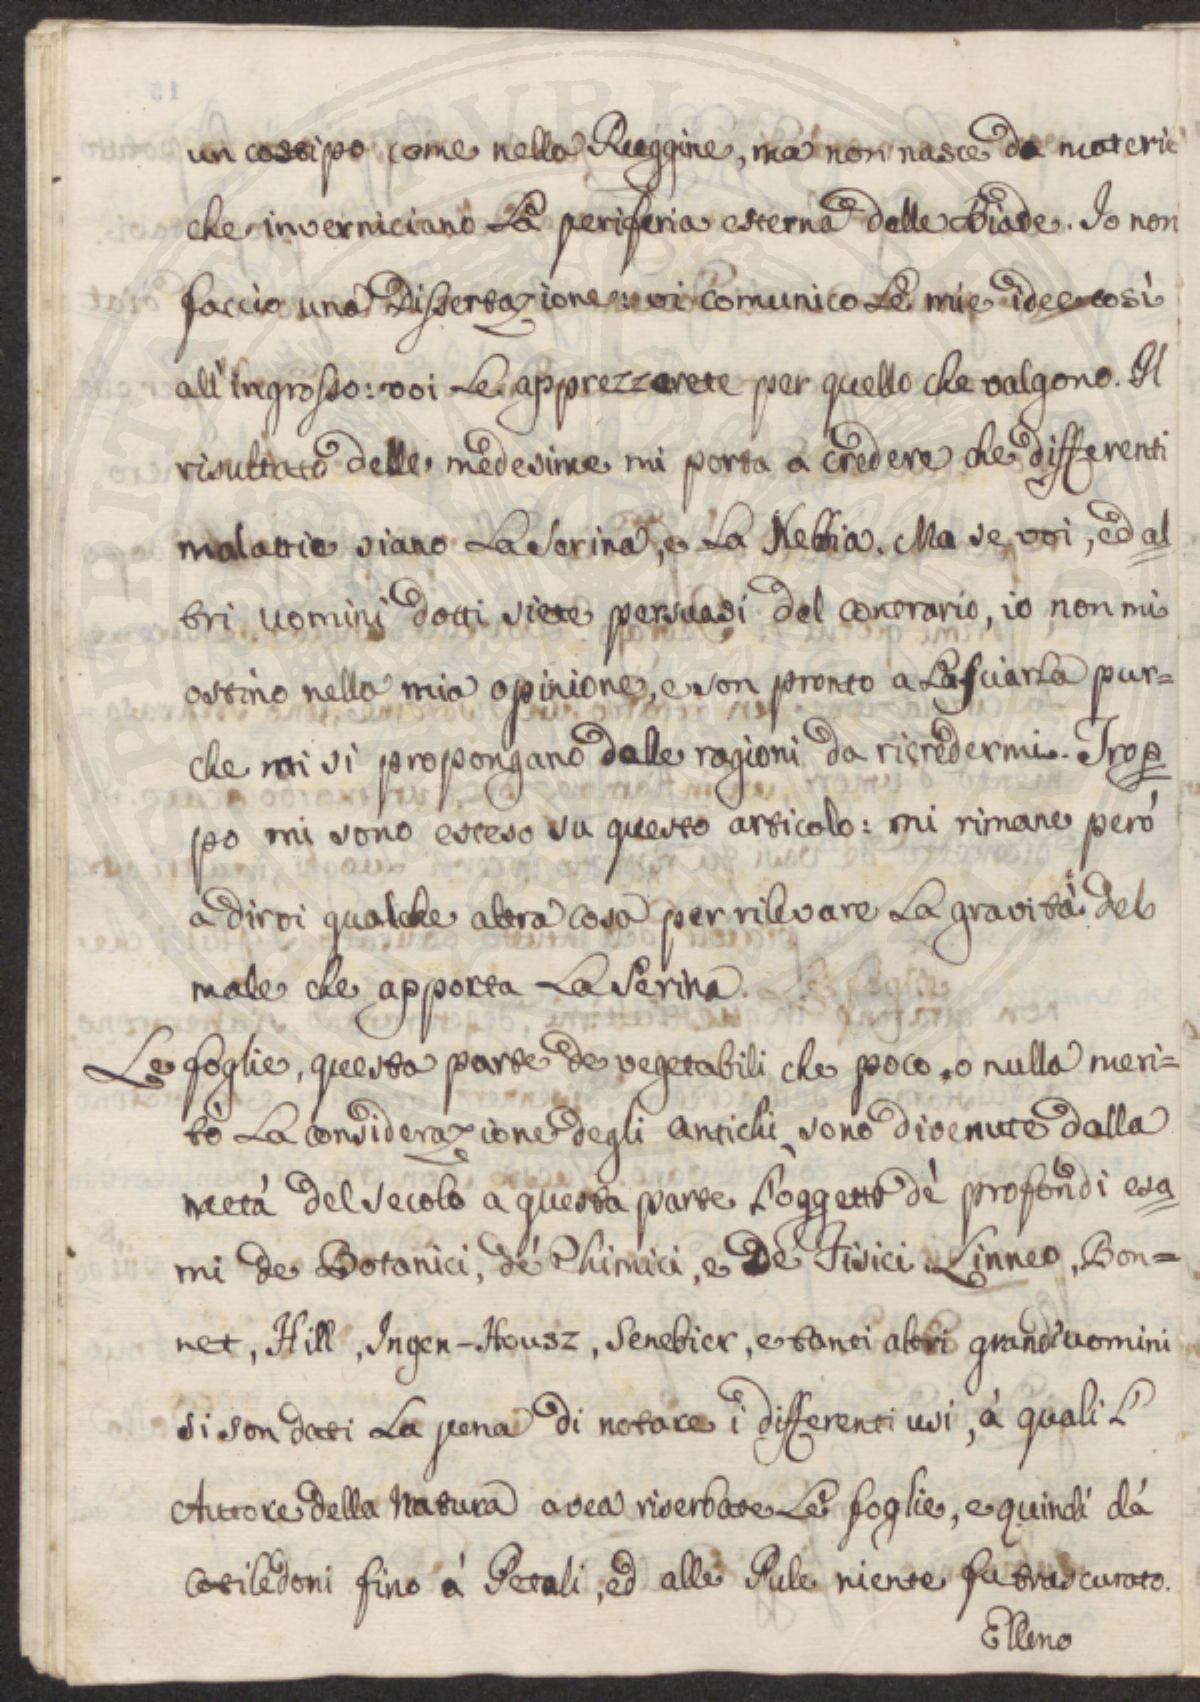 un cossipo come nella Ruggine, má non nasce da materie
che inverniciano La periferia esterna delle Biade. Io non
faccio una Dissertazione: vi comunico Le mie idee così
all'ingrosso: voi Le apprezzarete per quello che valgono. Il
risultato delle medesime mi porta a credere che differenti
malattie siano La Serina, e La Nebbia. Ma se voi, ed al
tri uomini dotti siete persuasi del contrario, io non mi
ostino nella mia opinione, e son pronto a Lasciarla pur=
che mi si propongano dalle ragioni da ricredermi. Trop
po mi sono esteso su questo articolo: mi rimane peró
a dirvi qualche altra cosa per rilevare La gravitá del
male che apporta La Serina.
Le foglie, questa parte de vegetabili che poco, o nulla meri=
tò La considerazione degli antichi, sono divenute dalla
metá del secolo a questa parte L'oggetto dè profondi esa
mi de Botanici, dé Chimici, e De Fisici. Linneo, Bon=
net, Hill, Ingen-Housz, Senebier, e tanti altri grand'uomini
si son dati La pena di notare i differenti usi, á quali L'
Auttore della Natura avea riserbate Le foglie, e quindi dá
Cotiledoni fino á Petali, ed alle Pule niente fu trascurato.
Elleno